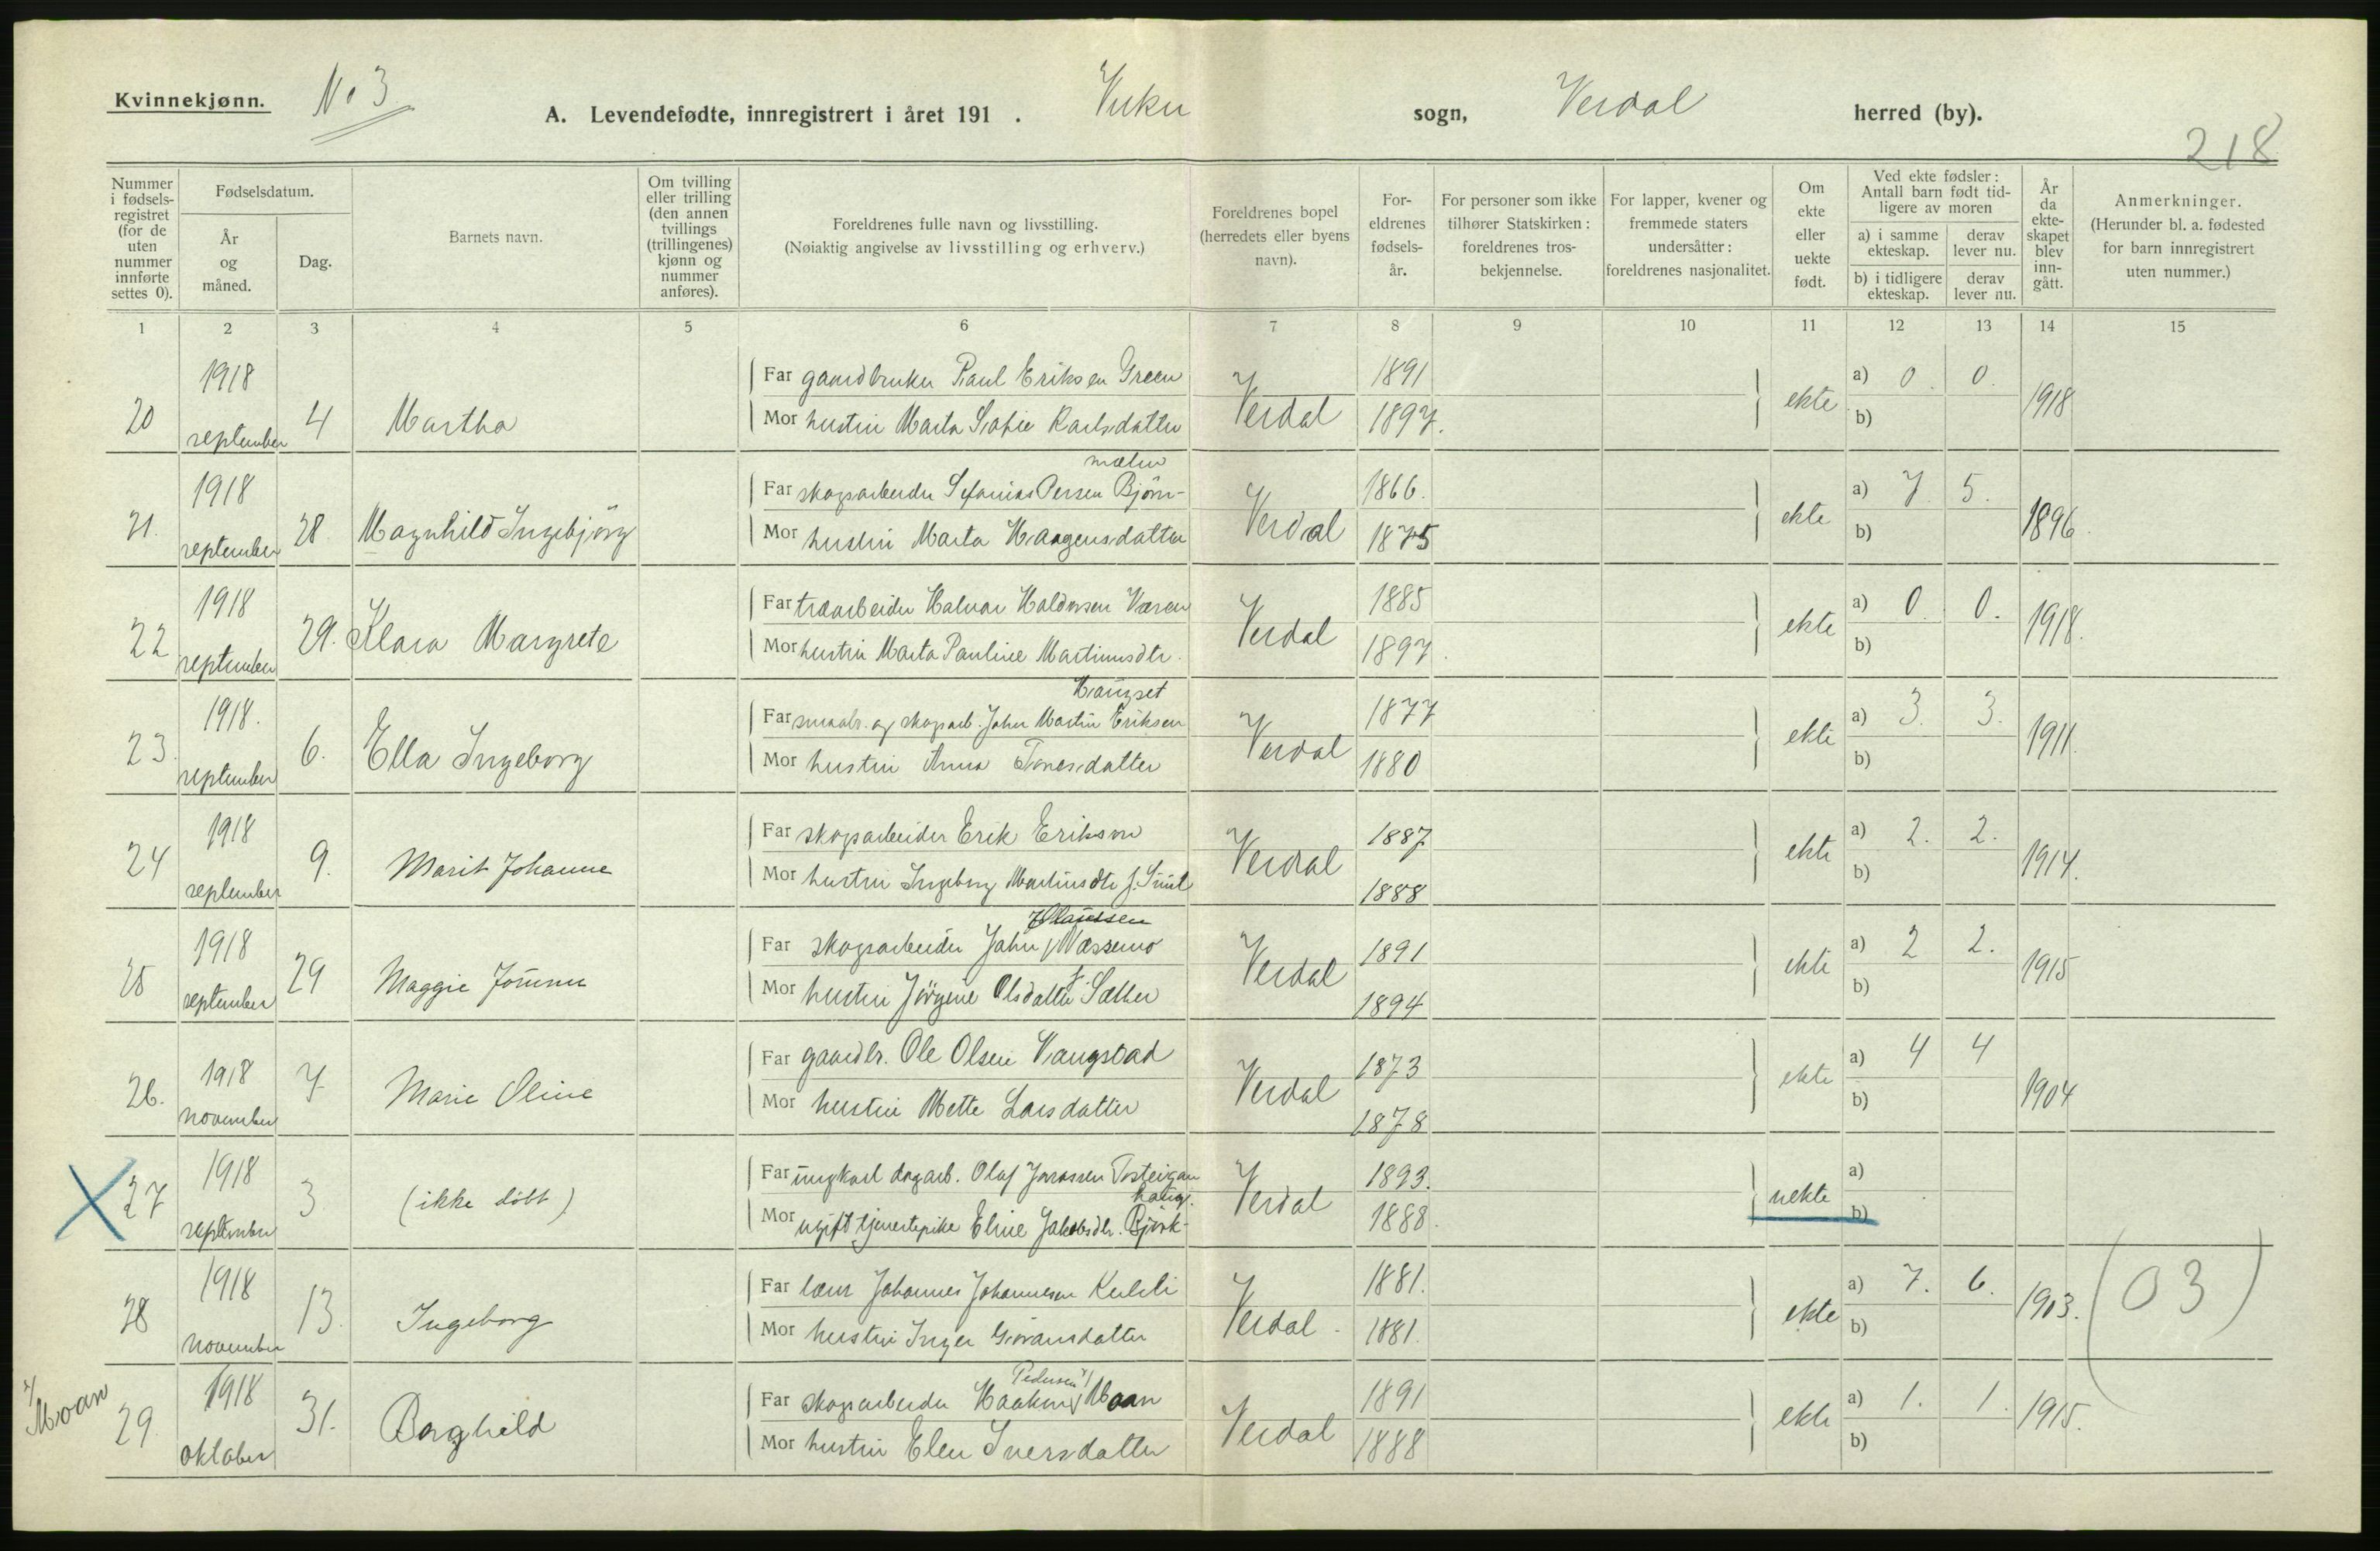 Kvinnekjønn. No 3
A. Levendefødte, innregistrert i året 191 . Vuku sogn, Verdal herred (by).
218
Nummer i fødselsregistret (for de uten nummer innførte settes 0).
Fødselsdatum.
År og måned.
Dag.
Barnets navn.
Om tvilling eller trilling (den annen tvillings (trillingenes) kjønn og nummer anføres).
Foreldrenes fulle navn og livsstilling.
(Nøiaktig angivelse av livsstilling og erhverv.)
Foreldrenes bopel (herredets eller byens navn).
Foreldrenes fødselsår.
For personer som ikke tilhører Statskirken: foreldrenes trosbekjennelse.
For lapper, kvener og fremmede staters undersåtter: foreldrenes nasjonalitet.
Om ekte eller uekte født.
Ved ekte fødsler: Antall barn født tidligere av moren
a) i samme ekteskap. derav lever nu.
b) i tidligere ekteskap. derav lever nu.
År da ekteskapet blev inngått.
Anmerkninger.
(Herunder bl. a. fødested for barn innregistrert uten nummer.)
1 2 3 4 5 6 7 8 9 10 11 12 13 14 15
20 1918 september 4 Martha
Far gaardbruker Paul Eriksen Green 1891
Mor hustru Marta Sofie Karlsdatter Verdal 1897. ekte a) 0. 0. b) 1918
21. 1918 september 28. Magnhild Ingebjörg
Far skogsarbeider Sefanias Persen Bjørn- mælen 1866.
Mor hustru Marta Haagensdatter Verdal 1875 ekte a) 7 5. b) 1896.
22 1918 september 29. Klara Margrete
Far træarbeider Halvar Haldorsen Væren 1885
Mor hustru Marta Pauline Martinusdtr. Verdal 1897. ekte a) 0. 0. b) 1918.
23. 1918. september 6. Ella Ingeborg
Far smaabr. og skogsarb. John Martin Eriksen Haugset 1877
Mor hustru Anna Tomasdatter Verdal 1880 ekte a) 3. 3. b) 1911.
24 1918 september 9. Marit Johanne
Far skogsarbeider Erik Eriksson 1887
Mor hustru Ingeborg Martinsdtr f. Verdal 1888 ekte a) 2. 2. b) 1914.
25 1918 september 29 Maggie
Far skogsarbeider John Olaussen Wæssemo 1891
Mor hustru Jørgine Olsdatter f. Sæther Verdal 1894 ekte a) 2 2. b) 1915
26. 1918 november 7 Marie Oline
Far gaardbr. Ole Olsen Vangstad 1873
Mor hustru Mette Larsdatter Verdal 1878 ekte a) 4 4 b) 1904
27 1918 september 3 (ikke döbt)
Far ungkarl dagarb. Olaf Jonassen 1893.
Mor ugift tjenestepike Eline Jakobsdtr. Björk- haug. Verdal 1888. uekte a) b)
28 1918 november 13. Ingeborg
Far lærer Johannes Johannesen Kulsli 1881.
Mor hustru Inger Göransdatter Verdal. 1881. ekte a) 7. 6. b) 1903. (03)
1/ Moan
29. 1918 oktober 31. Borghild
Far skogsarbeider Haakon Pedersen 1/ Moan 1891
Mor hustru Elen Iversdatter Verdal 1888 ekte a) 1. 1. b) 1915.